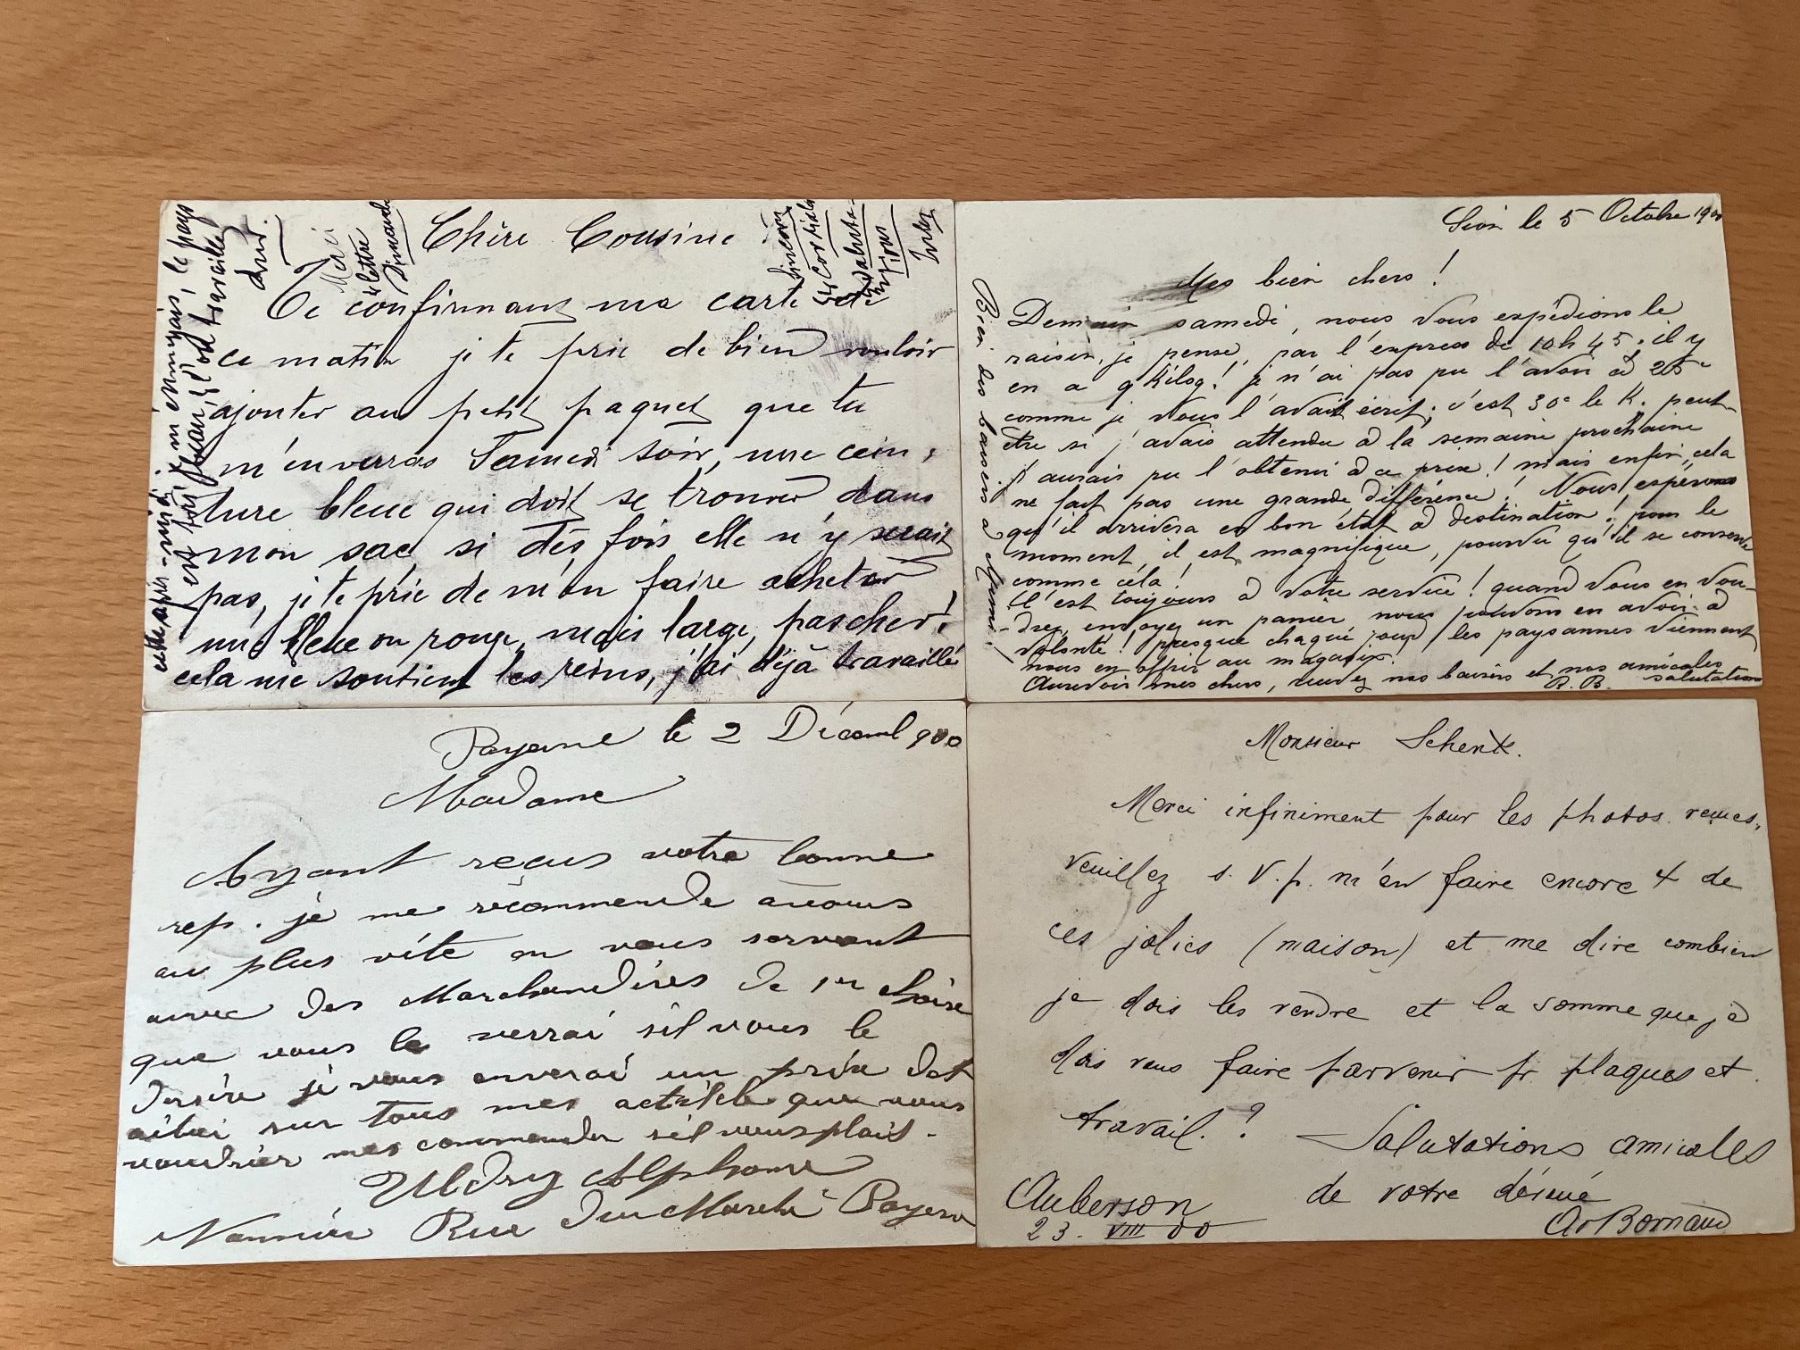 Chère Cousine
Te confirmant ma carte de
ce matin je te prie de bien vouloir
ajouter au petit paquet que tu
m'enverras Samedi soir, une cein,
ture bleue qui doit se trouver dans
mon sac si des fois elle n'y serait
pas, je te prie de m'en faire acheter
une bleue ou rouge, mais large, pas cher!
cela me soutient les reins, j'ai déjà travaillé
cette après-midi, je m'ennuyais, le pays
est très, l'on travaille
dur.
Merci
lettre
Dimanche
Sion le 5 Octobre 1900
Mes bien chers!
Demain samedi, nous vous expédions le
raisin, je pense, par l'express de 10h45. il y
en a 9 Kilog! je n'ai pas pu l'avoir à 25c
comme je vous l'avait écrit; c'est 30c le K. peut-
être si j'avais attendu à la semaine prochaine
j'aurais pu l'obtenir à ce prix! mais enfin, cela
ne fait pas une grande différence! Nous espérons
qu'il arrivera en bon état à destination! pour le
moment, il est magnifique, pourvu qu'il se conserve
comme cela!
Il est toujours à votre service! quand vous en vou-
drez, envoyez un panier nous pouvons en avoir à
volonté! presque chaque jour les paysannes viennent
nous en offrir au magasin.
Aurevoir mes chers, recevez nos baisers et nos amicales
salutation
B. B.
Bien des baisers à Mimi!
Payerne le 2 Décembl 900
Madame
Ayant reçus votre bonne
rep. je me récommende avous
au plus vite en vous servant
avec des Marchandires de 1er choire
que vous le verrai sil vous le
desire je vous enverai un prix
sur tous mes que vous
voudrier mes commender sil vous plait.
Uldry Alphonse
Vannier Rue du Marché Payerne
Monsieur Schenk.
Merci infiniment pour les photos reçues,
veuillez s. v. p. m'en faire encore 4 de
ces jolies (maison) et me dire combien
je dois les vendre et la somme que je
dois vous faire parvenir pr plaques et
travail. ?
Salutations amicales
de votre dévoué
Auberson
23. VIII 00
Bornand